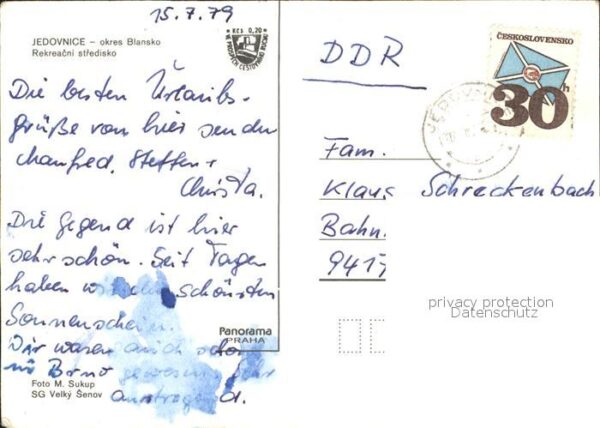 15.7.79
JEDOVNICE – okres Blansko
Rekreační středisko
Kčs 0,20
Die besten Urlaubs-
grüße von hier senden
Manfred, Steffen +
Christa.
Die Gegend ist hier
sehr schön. Seit Tagen
haben wir schönsten
Sonnenschein.
Wir waren auch schon
in Brno gewesen, sehr
anstrengend.
Panorama
PRAHA
Foto M. Sukup
SG Velký Šenov
ČESKOSLOVENSKO
30 h
DDR
Fam.
Klaus Schreckenbach
Bahn
9417
privacy protection
Datenschutz